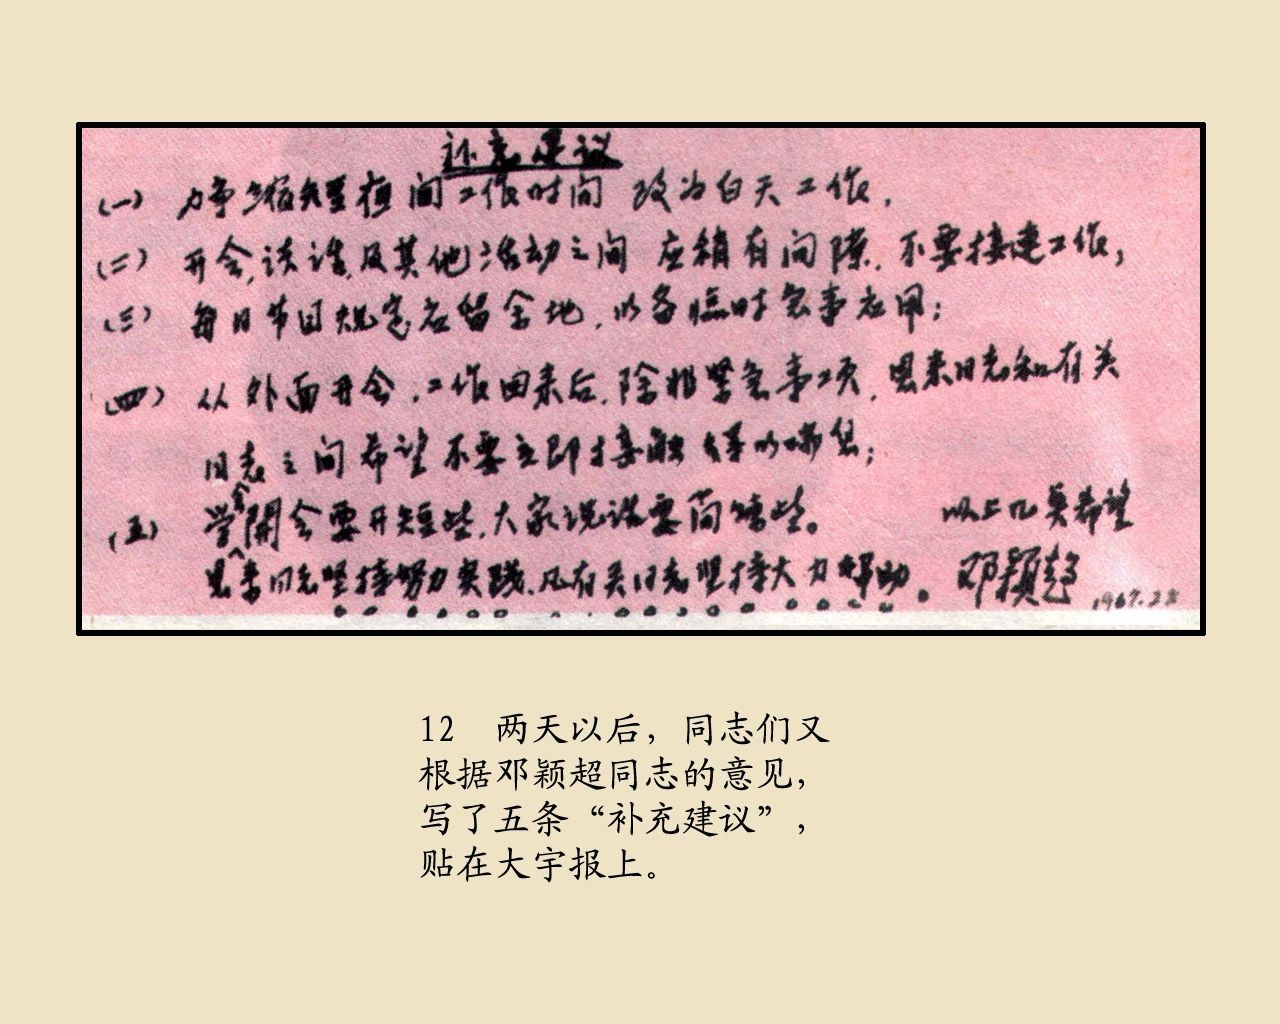 补充建议
(一) 力争缩短夜间工作时间 改为白天工作,
(二) 开会,谈话,及其他活动之间 应稍有间隙,不要接连工作;
(三) 每日节目规定应留余地,以备临时急事应用;
(四) 从外面开会、工作回来后,除非紧急事项,恩来同志和有关
同志之间希望不要立即接触得以喘息;
(五) 学会开会要开短些,大家说话要简练些。 以上几点希望
恩来同志坚持努力实践,凡有关同志坚持大力帮助。 邓颖超 1967.2.5
12 两天以后,同志们又
根据邓颖超同志的意见,
写了五条“补充建议”,
贴在大字报上。